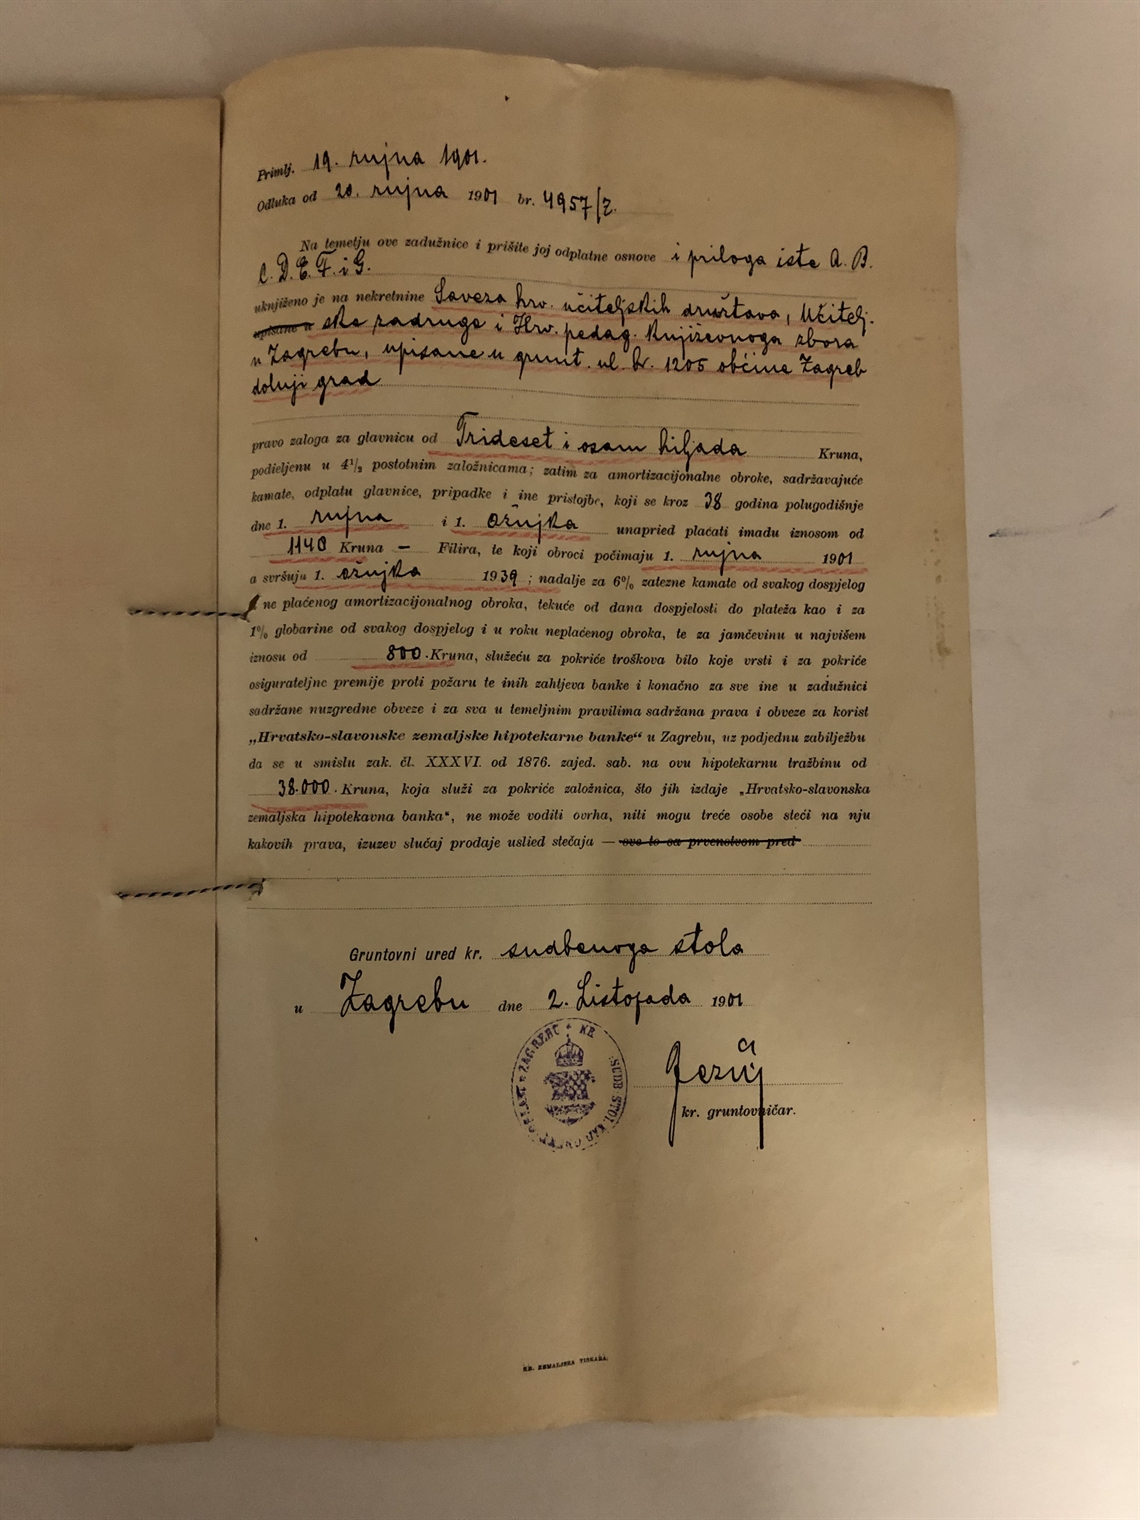 Primlj. 19. rujna 1901.
Odluka od 20. rujna 1901 br. 4957/z.
Na temelju ove zadužnice i prišite joj odplatne osnove i priloga iste A. B.
C. D. E. F. i G.
uknjiženo je na nekretnine Saveza hrv. učiteljskih društava, Učitelj-
upisane u ske zadruge i Hrv. pedag. književnoga zbora
u Zagrebu, upisane u grunt. ul. br. 1205 obćine Zagreb
dolnji grad
pravo zaloga za glavnicu od Trideset i osam hiljada Kruna,
podieljenu u 4½ postotnim založnicama; zatim za amortizacijonalne obroke, sadržavajuće
kamate, odplatu glavnice, pripadke i ine pristojbe, koji se kroz 38 godina polugodišnje
dne 1. rujna i 1. ožujka unapried plaćati imadu iznosom od
1140 Kruna — Filira, te koji obroci počimaju 1. rujna 1901
a svršuju 1. ožujka 1939; nadalje za 6% zatezne kamate od svakog dospjelog
ne plaćenog amortizacijonalnog obroka, tekuće od dana dospjelosti do plateža kao i za
1% globarine od svakog dospjelog i u roku neplaćenog obroka, te za jamčevinu u najvišem
iznosu od 800 Kruna, služeću za pokriće troškova bilo koje vrsti i za pokriće
osigurateljne premije proti požaru te inih zahtjeva banke i konačno za sve ine u zadužnici
sadržane nuzgredne obveze i za sva u temeljnim pravilima sadržana prava i obveze za korist
„Hrvatsko-slavonske zemaljske hipotekarne banke“ u Zagrebu, uz podjednu zabilježbu
da se u smislu zak. čl. XXXVI. od 1876. zajed. sab. na ovu hipotekarnu tražbinu od
38.000 Kruna, koja služi za pokriće založnica, što jih izdaje „Hrvatsko-slavonska
zemaljska hipotekavna banka“, ne može voditi ovrha, niti mogu treće osobe steći na nju
kakovih prava, izuzev slučaj prodaje uslied stečaja — sve to sa prvenstvom pred
Gruntovni ured kr. sudbenoga stola
u Zagrebu dne 2. Listopada 1901
kr. gruntovničar.
KR. ZEMALJSKA TISKARA.